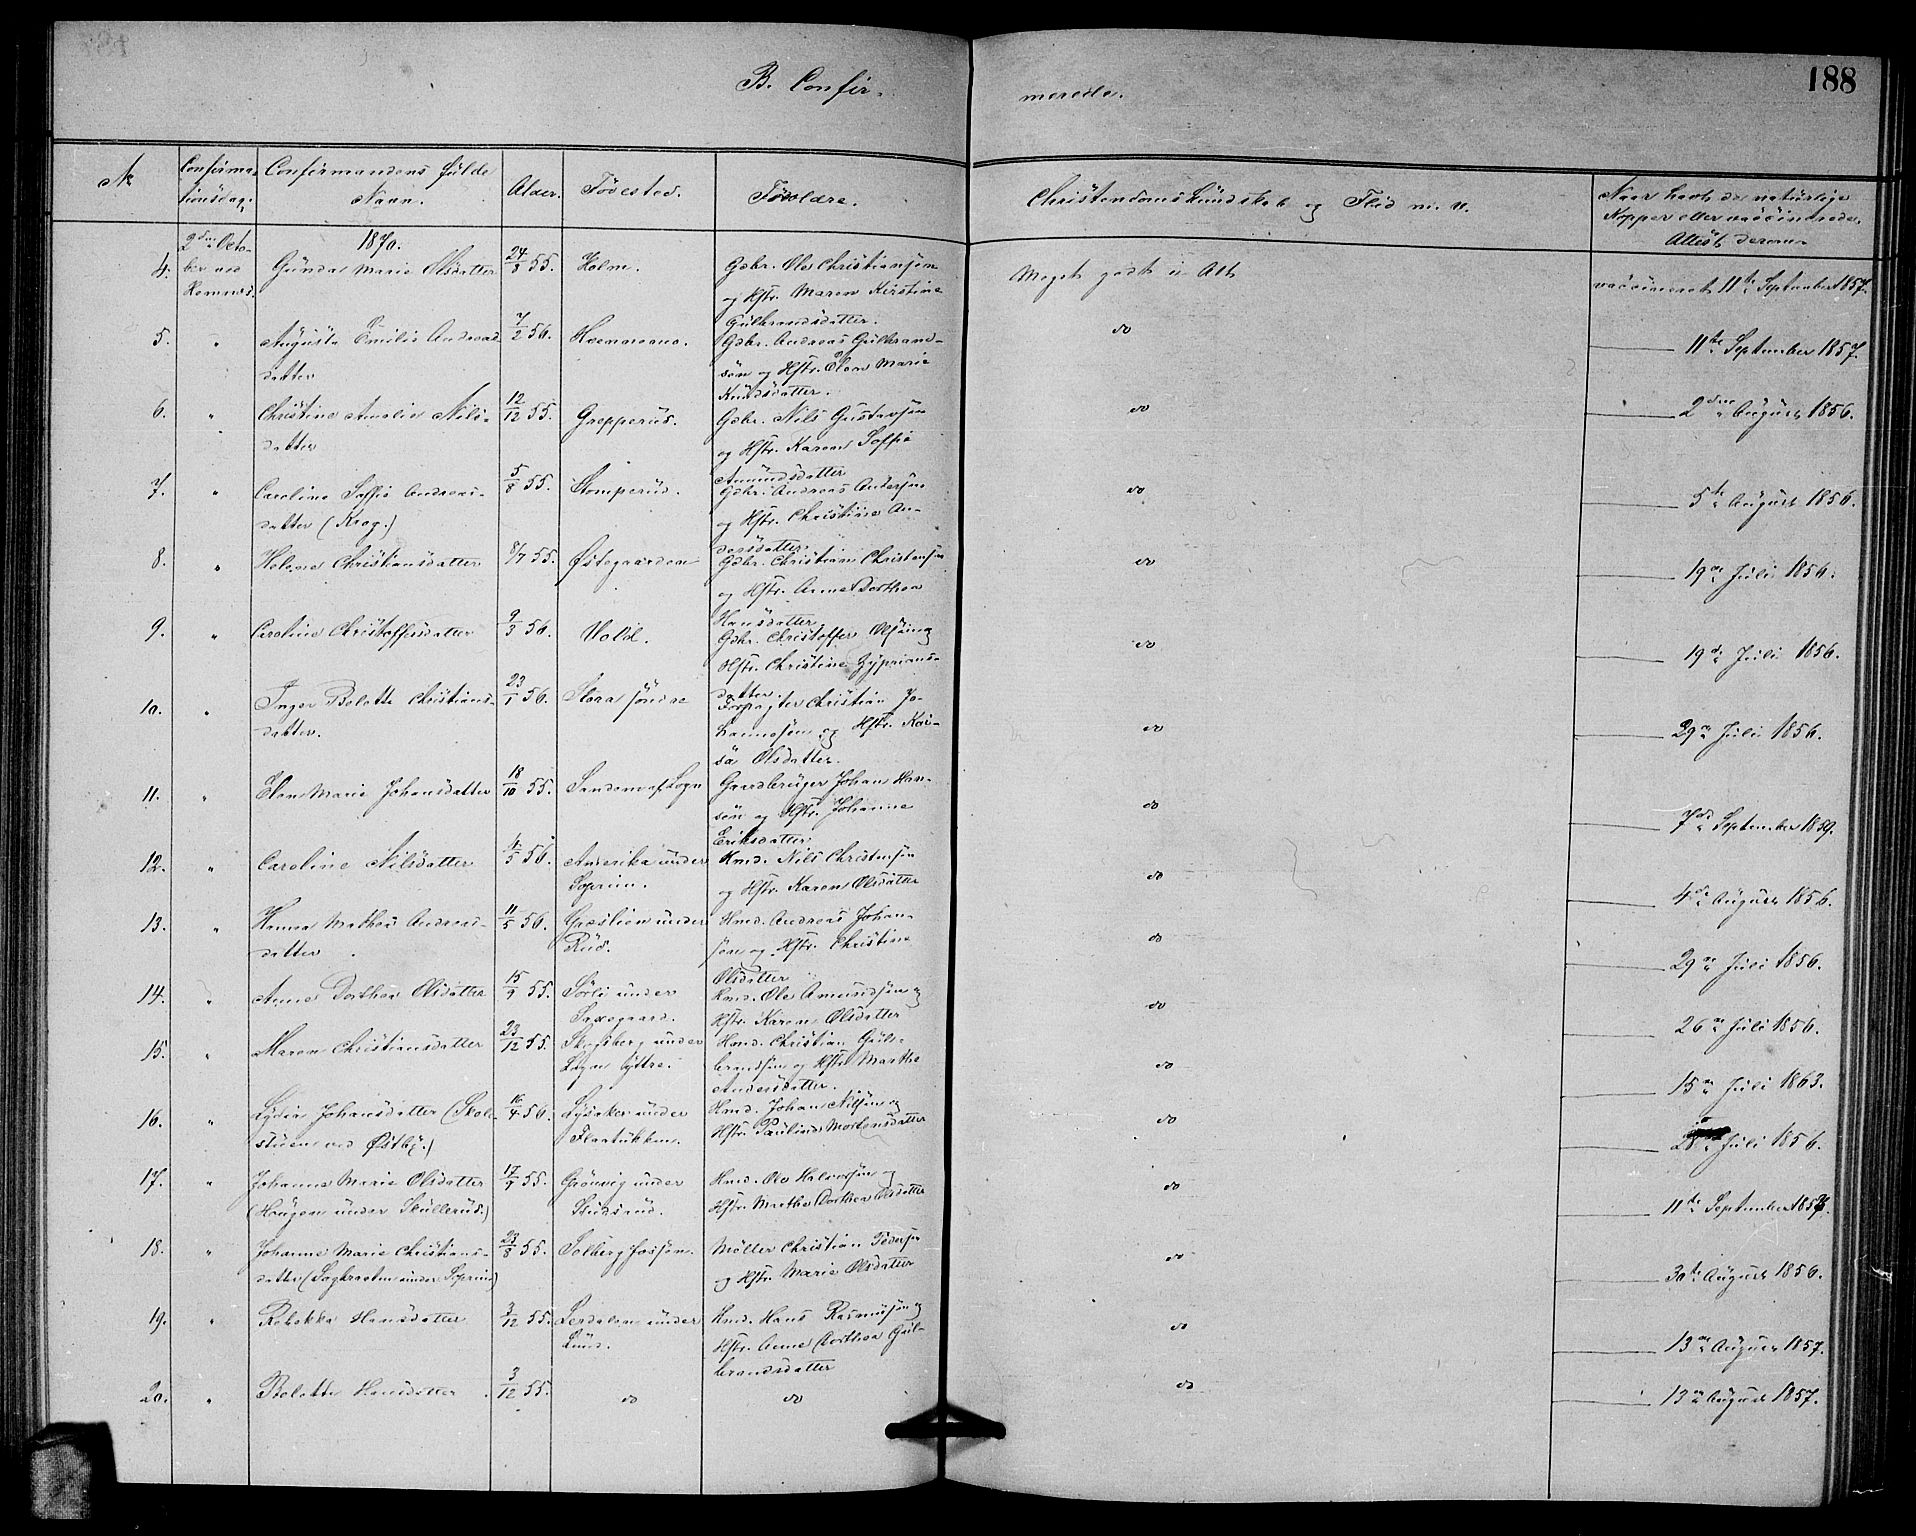 188
B. Confir-
merede.
No
Confirma-
tionsdag.
Confirmandens fulde
Navn.
Alder.
Fødested.
Forældre.
Christendomskundskab og Flid m. v.
Naar havt de naturlige
Kopper eller vaccinerede.
Attest derom
1870.
4.
2den Octo-
ber ved
Hemnes.
Gunda Marie Olsdatter
24/8 55.
Holm.
Gdbr. Ole Christiansøn
og Hstr. Maren Kirstine
Gulbrandsdatter.
Meget godt i Alt
vaccineret 11te September 1857.
5.
"
Augusta Emilie Andreas
datter
7/2 56.
Gdbr. Andreas Gulbrand-
søn og Hstr. Elen Marie
Knudsdatter.
do
11te September 1857.
6.
"
Christine Amalie Nils-
datter
12/12 55.
Grepperud.
Gdbr. Nils Gustavsøn
og Hstr. Karen Soffie
Amundsdatter
do
2den August 1856.
7.
"
Caroline Soffie Andreas-
datter (Krog.)
5/8 55.
Stomperud.
Gdbr. Andreas Andersøn
og Hstr. Christine An-
dersdatter
do
5te August 1856.
8.
"
Helene Christiansdatter
8/7 55.
Østegaarden
Gdbr. Christian Christensøn
og Hstr. Anne Dorthea
Hansdatter.
do
19de Juli 1856.
9.
"
Caroline Christoffersdatter
9/3 56.
Vold.
Gdbr. Christoffer Olsøn og
Hstr. Christine Zyprians-
datter.
do
19de Juli 1856.
10.
"
Inger Bolette Christians-
datter.
23/1 56.
Slora søndre
Forpagter Christian Jo-
hannesøn og Hstr. Kai-
sa Olsdatter.
do
29de Juli 1856.
11.
"
Elen Marie Johansdatter
18/10 55.
Gaardbruger Johan Han-
søn og Hstr. Johanne
Eriksdatter
do
7de September 1859.
12.
"
Caroline Nilsdatter
4/5 56.
Amerika under
Soprim.
Hmd. Nils Christensøn
og Hstr. Karen Olsdatter
do
4de August 1856.
13.
"
Hanna Mathea Andreas-
datter
11/5 56.
Græslien under
Rud.
Hmd. Andreas Johan-
søn og Hstr. Christine
Olsdatter
do
29de Juli 1856.
14.
"
Anne Dorthea Olsdatter
15/9 55.
Sørli under
Saxegaard.
Hmd. Ole Amundsøn og
Hstr. Karen Olsdatter
do
26de Juli 1856.
15.
"
Maren Christiansdatter
23/12 55.
Skogsberg under
Løgn Yttre.
Hmd. Christian Gul-
brandsøn og Hstr. Marthe
Andersdatter.
do
15de Juli 1863.
16.
"
Lydia Johansdatter (Skole-
stuen ved Østby.)
16/4 56.
Lysaker under
Flaatukken.
Hmd. Johan Nilsøn og
Hstr. Pauline Mortensdatter
do
28 Juli 1856.
17.
"
Johanne Marie Olsdatter
(Haugen under Skullerud.)
17/9 55.
Grønvig under
Studsrud.
Hmd. Ole Halvorsøn og
Hstr. Marthe Dorthea Olsdatter
do
11te September 1856.
18.
"
Johanne Marie Christians-
datter (Sagbraaten under Soprim)
23/8 55.
Solbergfossen.
Møller Christian Pedersøn
og Hstr. Marie Olsdatter
do
30te August 1856.
19.
"
Rebekka Hansdatter
3/12 55.
Lerdalen under
Lund.
Hmd. Hans Rasmusøn og
Hstr. Anne Dorthea Gul-
brandsdatter
do
13de August 1857.
20.
"
Bolette Hansdatter
3/12 55.
do
do
do
13de August 1857.